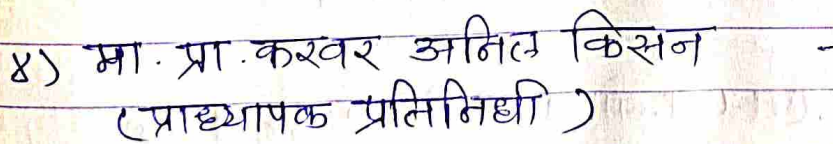 ४) मा. प्रा. करवर अनिल किसन -
(प्राध्यापक प्रतिनिधी)